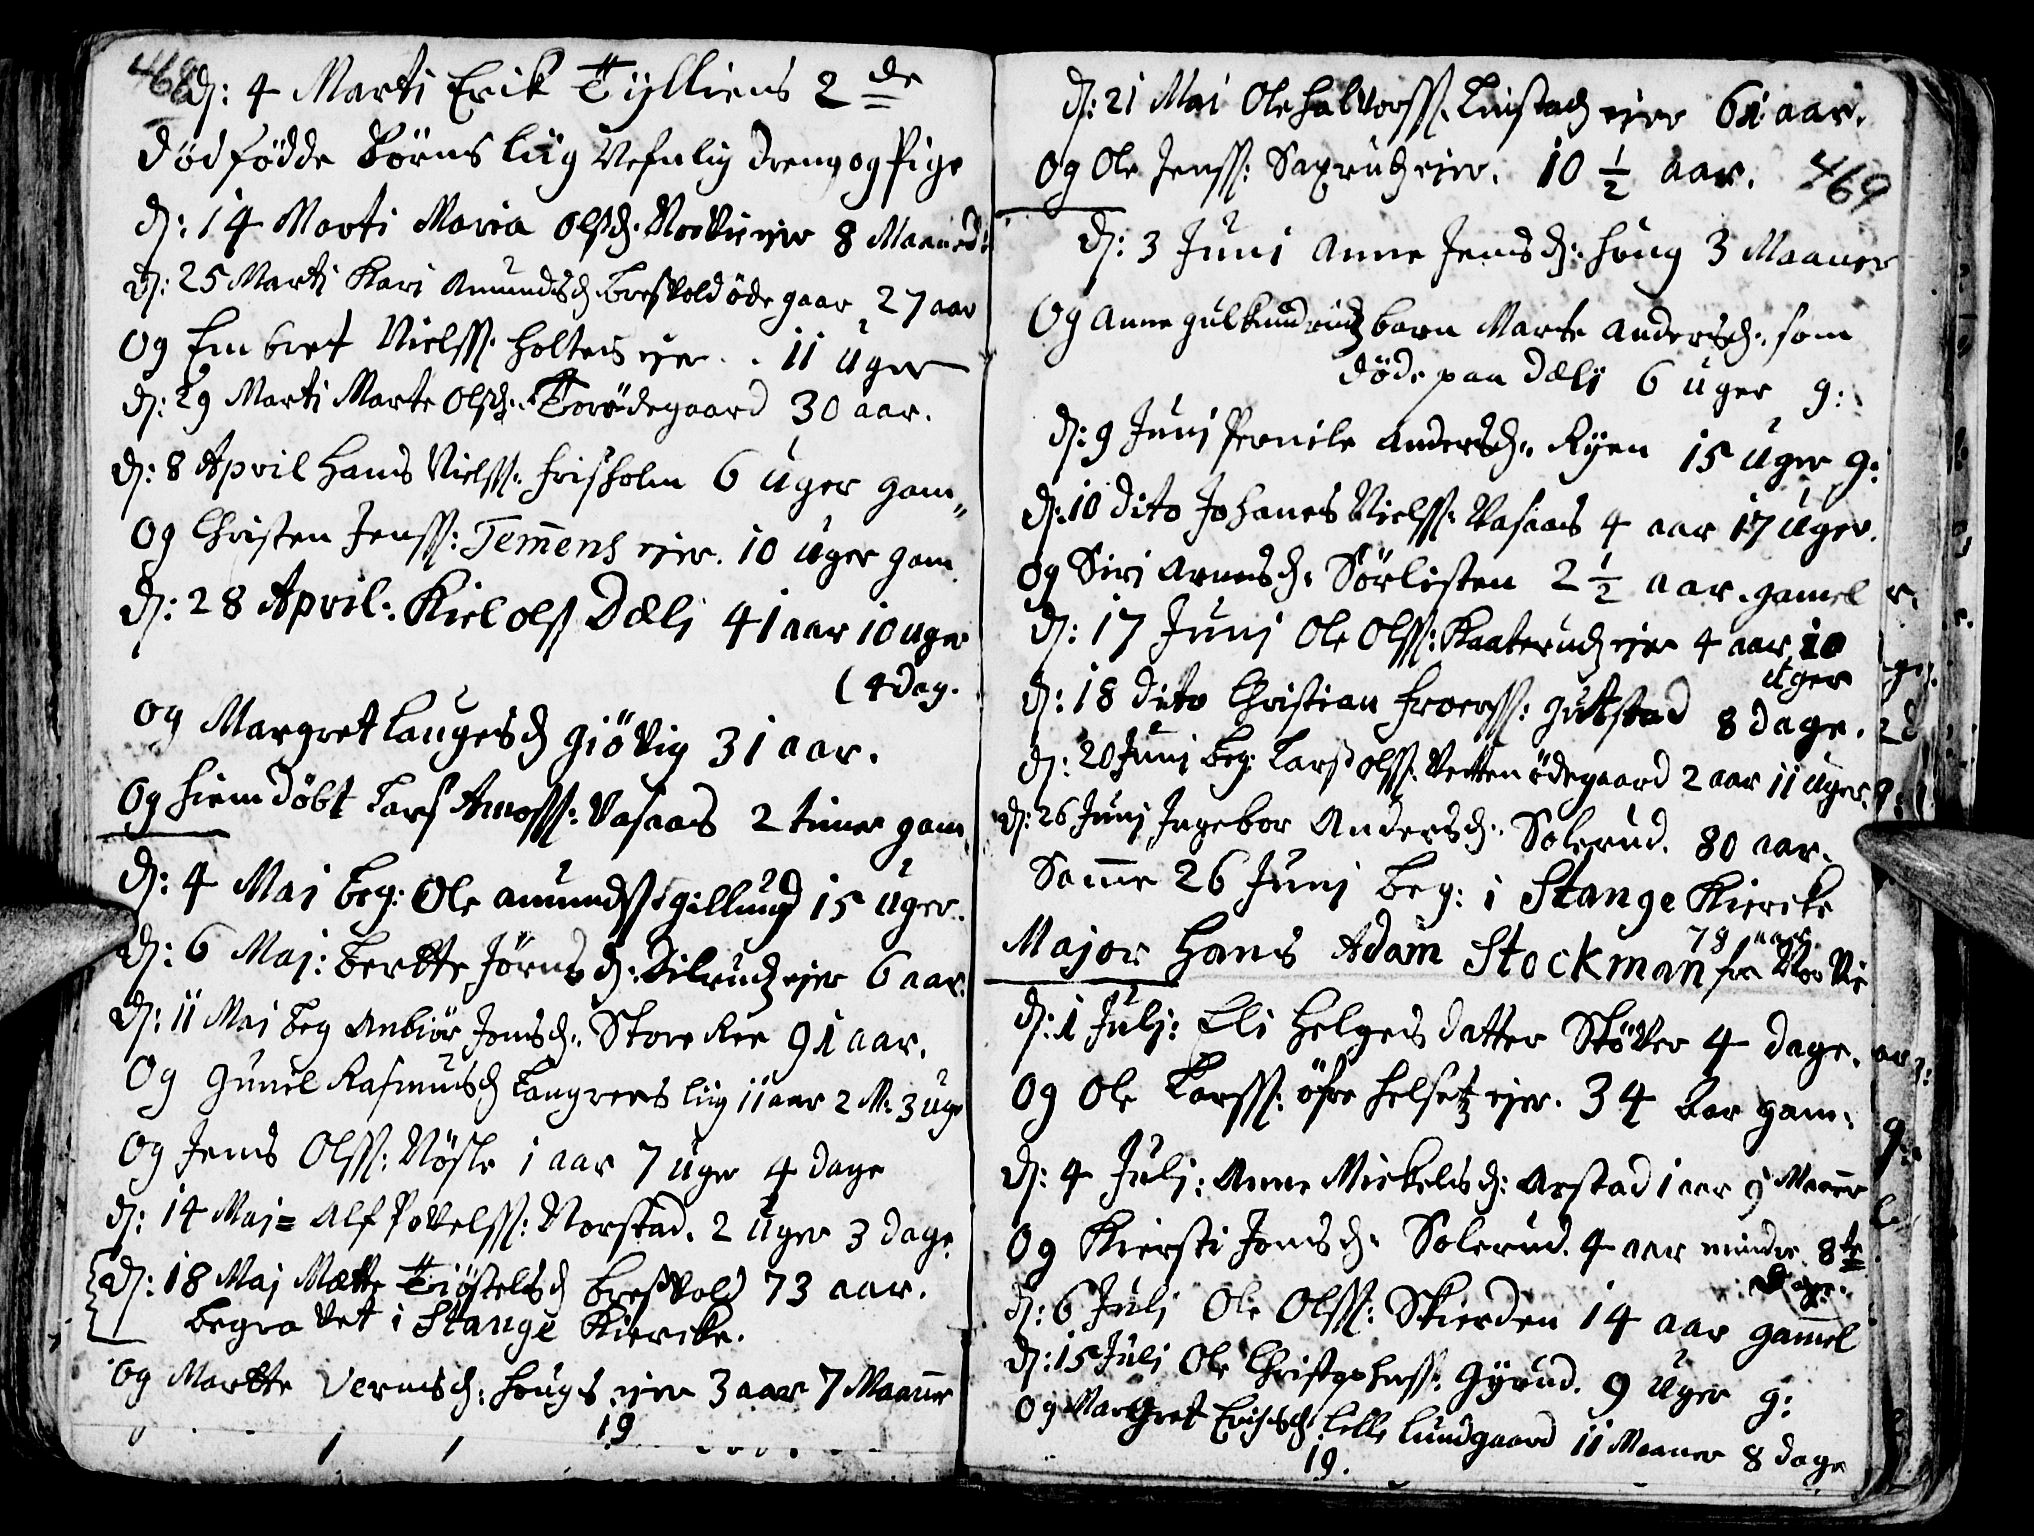 468
d: 4 Marti Erik Tylliens 2 de
død fødde Børns liig Nefnlig dreng og Pige
d: 14 Marti Maria Olsd: Norvie ejer 8 Maaneder
d: 25 Marti Kari Amundsd: Breskold ødegaar 27 aar
Og Embret Nielss: Holtens ejer . . 11 Uger
d: 29 Marti Marte Olsd: Torødegaard 30 aar.
d: 8 April Hans Nielss: Frisholm 6 Uger gam
Og Christen Jenss: Temens ejer. 10 Uger gam
d: 28 April: Kiel Olss Dæli 41 aar 10 uger
( 4 dag.
og Margret Laugesd Giövig 31 aar.
Og Hiemdøbt Lars Amoss: Vasaas 2 timer gam.
d: 4 Maj Beg: Ole Amundss: Gillund 15 Uger.
d: 6 Maj: Berthe Jörnsd: Dilrud ejer 6 aar.
d: 11 Maj Beg Anbiör Jonsd: Store Ree 91 aar.
Og Gunil Rasmusd Langrees liig 11 aar 2 M: 3 Ug
Og Jens Olss: Nösle 1 aar 7 Uger 4 dage
d: 14 Maj = Alf Povelss: Norstad. 2 Uger 3 dage
d: 18 Maj Mætte Tiöstelsd Breskold 73 aar.
Begravet i Stange Kiercke.
Og Marthe Vermsd: Hougs ejer 3 aar 7 Maaner
19
d: 21 Mai Ole Halvorss: Linstad ejer 61 aar.
Og Ole Jenss: Saxrud ejer. 10 1/2 aar.
469
d: 3 Juni Anne Jensd: Houg 3 Maaner
Og Anne Gulkundrud barn Marte Andersd: som
døde paa Dæly 6 Uger g:
d: 9 Junj Pernile Andersd: Ryen 15 Uger g:
d: 10 dito Johanes Nielss: Vasaas 4 aar 17 Uger.
Og Siri Arnesd: Sörlisten 2 1/2 aar. gamel
d: 17 Junj Ole Olss: Kaaterud ejer 4 aar 10
Uger
d: 18 dito Christian Froerss: Gutstad 8 dage.
d: 20 Junj Beg: Lars Olss: Vetten ødegaard 2 aar 11 Uger.
d: 26 Junj Ingebor Andersd: Solerud. 80 aar.
Same 26 Junj Beg: i Stange Kiercke
78 aar.
Major Hans Adam Stockman fra Norvie
d: 1 Julj: Eli Helges datter Stöver 4 dage.
Og Ole Larss: öfre Helset ejer. 34 aar gam:
d: 4 Julj: Anne Mickelsd: Arstad 1 aar 9 Maaner
Og Kiersti Jonsd: Solerud. 4 aar mindre 8te
Dage.
d: 6 Julj Ole Olss: Skierden 14 aar gamel
d: 15 Juli Ole Christophss: Gyrud. 9 Uger g:
Og Margret Erichsd: Lille Lundgaard 11 Maaner 8 dage
19.